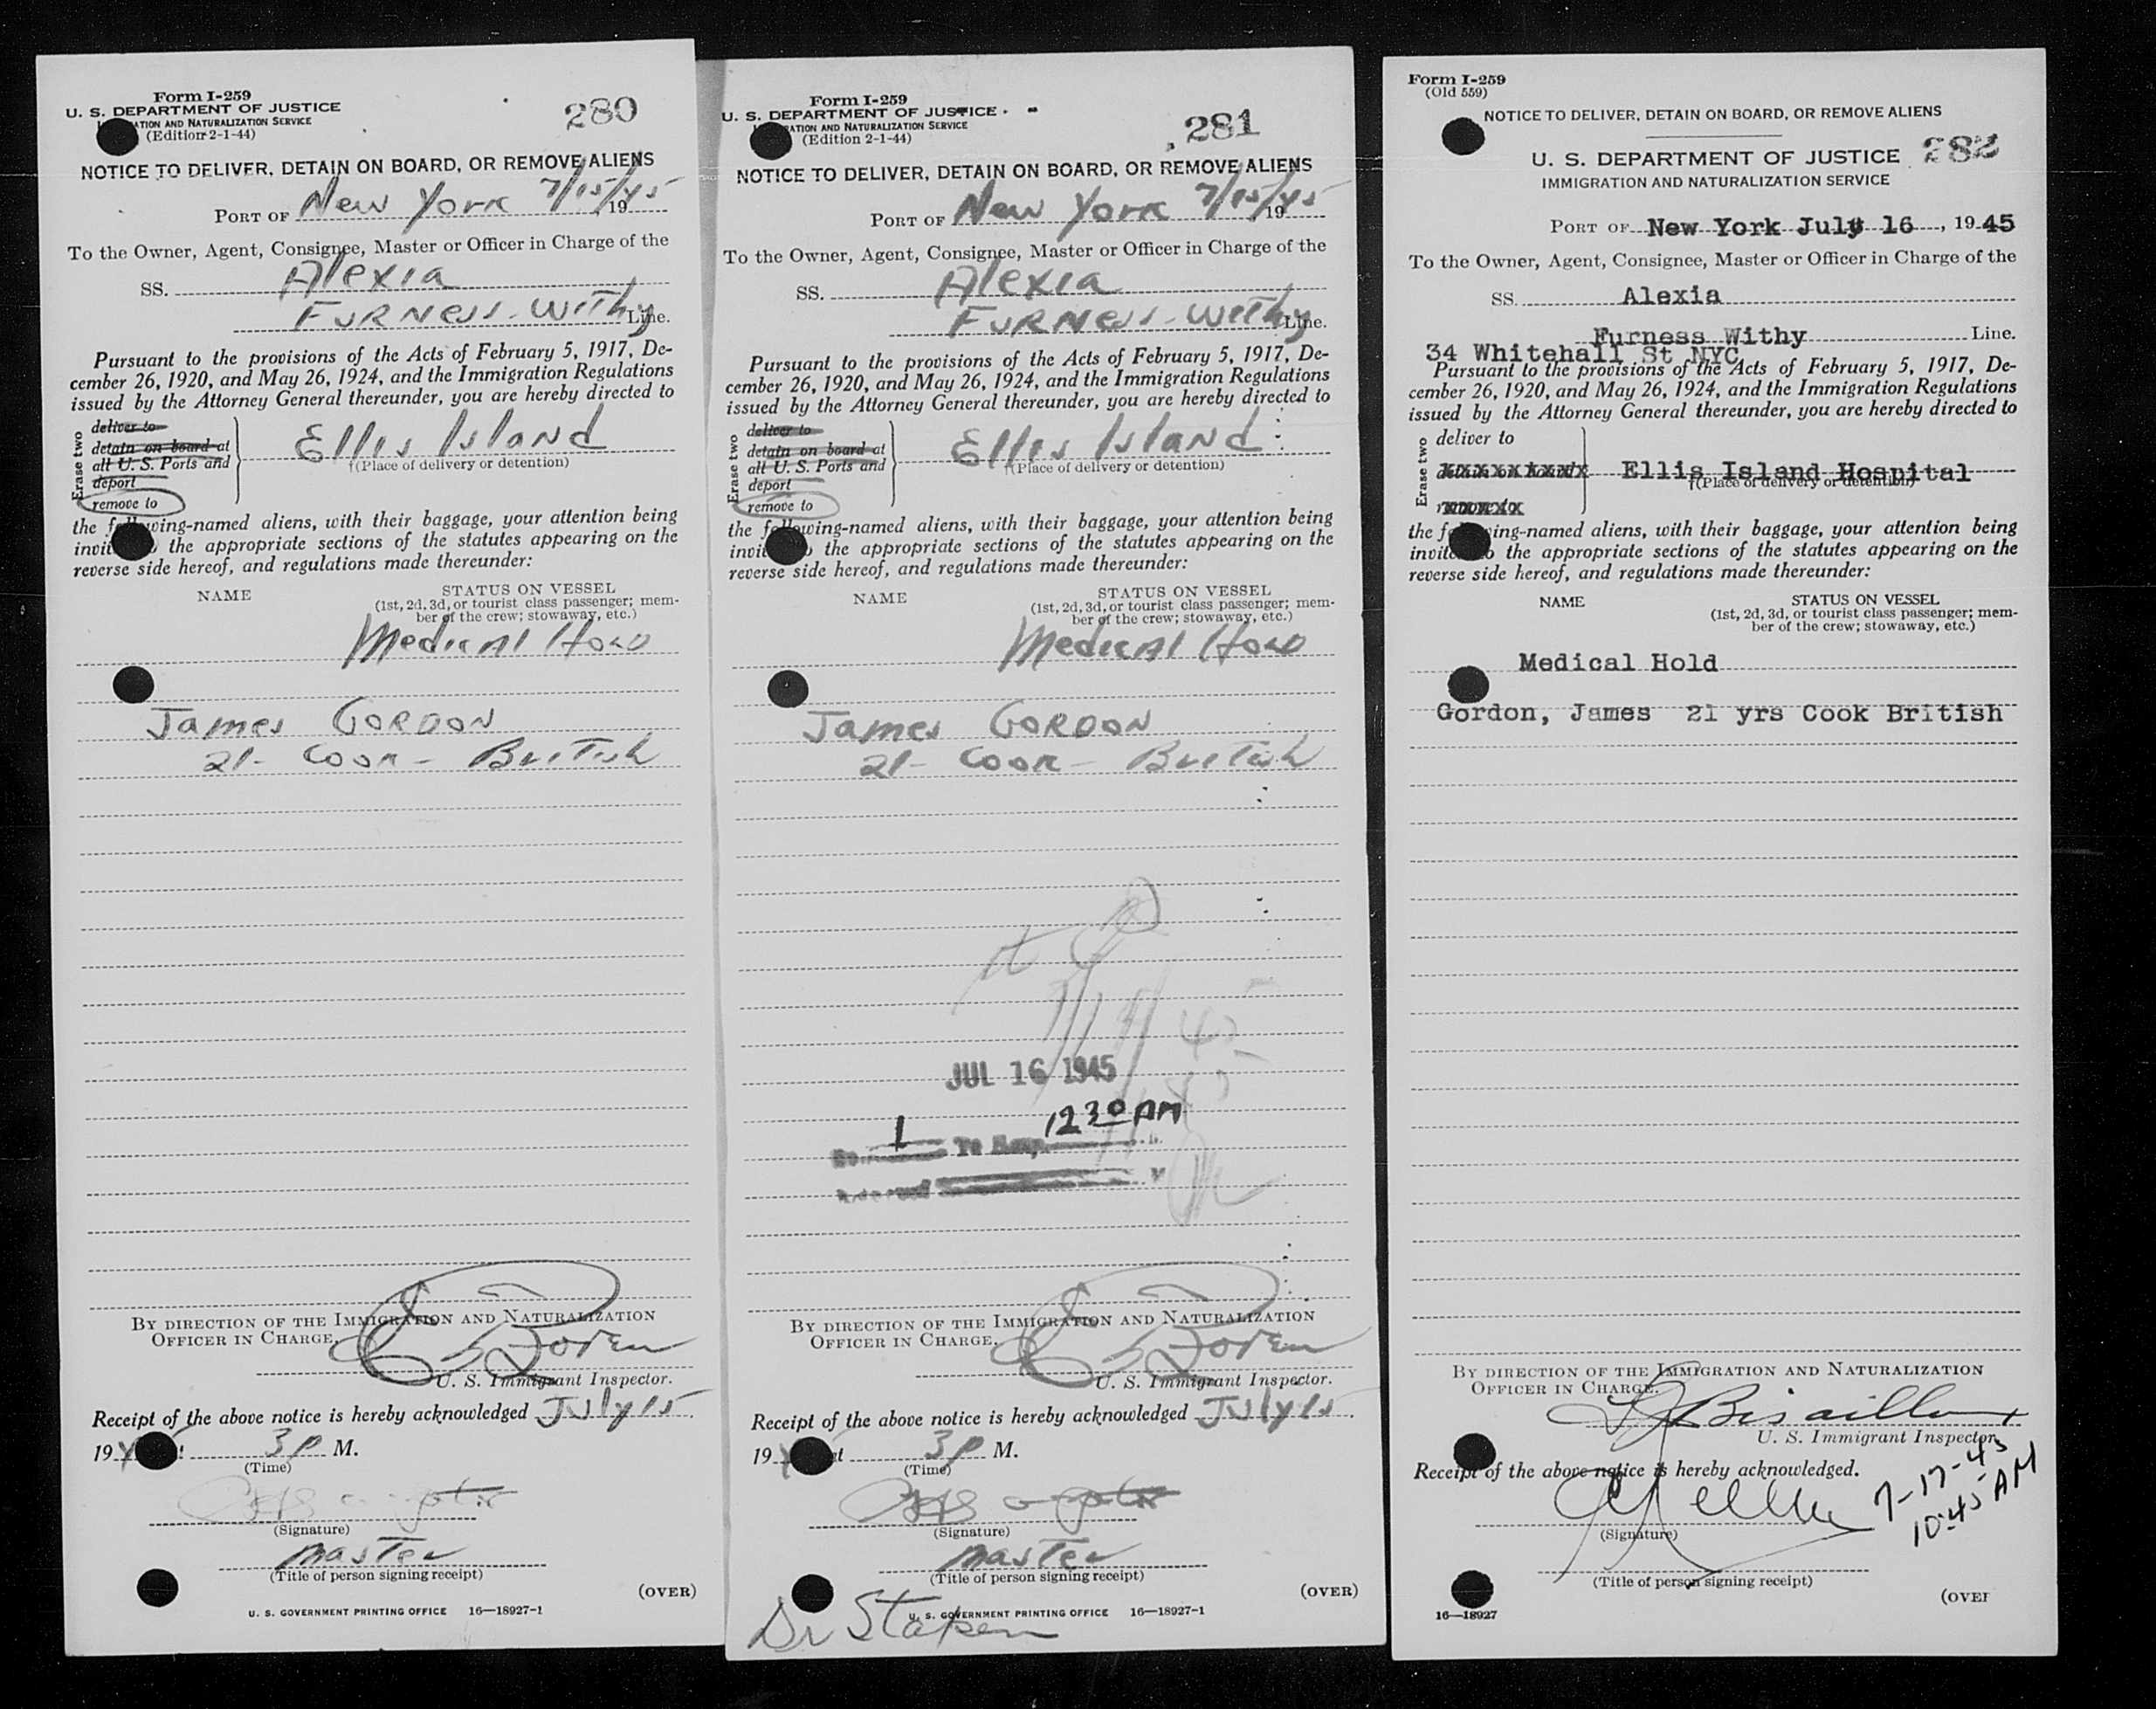 Form I-259
U. S. DEPARTMENT OF JUSTICE
ATION AND NATURALIZATION SERVICE
(Edition 2-1-44)
280
NOTICE TO DELIVER, DETAIN ON BOARD, OR REMOVE ALIENS
PORT OF New York 7/15/45, 19
To the Owner, Agent, Consignee, Master or Officer in Charge of the
SS. Alexia
Furness-Withy Line.
Pursuant to the provisions of the Acts of February 5, 1917, De-
cember 26, 1920, and May 26, 1924, and the Immigration Regulations
issued by the Attorney General thereunder, you are hereby directed to
Erase two
deliver to
detain on board at
all U. S. Ports and
deport
remove to
Ellis Island
†(Place of delivery or detention)
the following-named aliens, with their baggage, your attention being
invit the appropriate sections of the statutes appearing on the
reverse side hereof, and regulations made thereunder:
NAME
STATUS ON VESSEL
(1st, 2d, 3d, or tourist class passenger; mem-
ber of the crew; stowaway, etc.)
Medical Hold
James Gordon
21- Cook - British
BY DIRECTION OF THE IMMIGRATION AND NATURALIZATION
OFFICER IN CHARGE.
U. S. Immigrant Inspector.
Receipt of the above notice is hereby acknowledged July 15
19 3 P M.
(Time)
(Signature)
Master
(Title of person signing receipt)
(OVER)
U. S. GOVERNMENT PRINTING OFFICE 16—18927-1
Form I-259
U. S. DEPARTMENT OF JUSTICE
ATION AND NATURALIZATION SERVICE
(Edition 2-1-44)
281
NOTICE TO DELIVER, DETAIN ON BOARD, OR REMOVE ALIENS
PORT OF New York 7/15/45 19
To the Owner, Agent, Consignee, Master or Officer in Charge of the
SS. Alexia
Furness-Withy Line.
Pursuant to the provisions of the Acts of February 5, 1917, De-
cember 26, 1920, and May 26, 1924, and the Immigration Regulations
issued by the Attorney General thereunder, you are hereby directed to
Erase two
deliver to
detain on board at
all U. S. Ports and
deport
remove to
Ellis Island
†(Place of delivery or detention)
the following-named aliens, with their baggage, your attention being
invi the appropriate sections of the statutes appearing on the
reverse side hereof, and regulations made thereunder:
NAME
STATUS ON VESSEL
(1st, 2d, 3d, or tourist class passenger; mem-
ber of the crew; stowaway, etc.)
Medical Hold
James Gordon
21- Cook - British
JUL 16 1945
1 To Hosp. 12 30 AM
BY DIRECTION OF THE IMMIGRATION AND NATURALIZATION
OFFICER IN CHARGE.
U. S. Immigrant Inspector.
Receipt of the above notice is hereby acknowledged July 15.
19 3 P M.
(Time)
(Signature)
Master
(Title of person signing receipt)
(OVER)
U. S. GOVERNMENT PRINTING OFFICE 16—18927-1
Dr
Form I-259
(Old 559)
NOTICE TO DELIVER, DETAIN ON BOARD, OR REMOVE ALIENS
U. S. DEPARTMENT OF JUSTICE
282
IMMIGRATION AND NATURALIZATION SERVICE
PORT OF New York July 16, 1945
To the Owner, Agent, Consignee, Master or Officer in Charge of the
SS. Alexia
Furness Withy Line.
34 Whitehall St NYC
Pursuant to the provisions of the Acts of February 5, 1917, De-
cember 26, 1920, and May 26, 1924, and the Immigration Regulations
issued by the Attorney General thereunder, you are hereby directed to
Erase two
deliver to
Ellis Island Hospital
†(Place of delivery or detention)
the following-named aliens, with their baggage, your attention being
invite the appropriate sections of the statutes appearing on the
reverse side hereof, and regulations made thereunder:
NAME
STATUS ON VESSEL
(1st, 2d, 3d, or tourist class passenger; mem-
ber of the crew; stowaway, etc.)
Medical Hold
Gordon, James 21 yrs Cook British
BY DIRECTION OF THE IMMIGRATION AND NATURALIZATION
OFFICER IN CHARGE.
U. S. Immigrant Inspector
Receipt of the above notice is hereby acknowledged.
7-17-45
10:45 AM
(Signature)
(Title of person signing receipt)
16—18927
(OVER